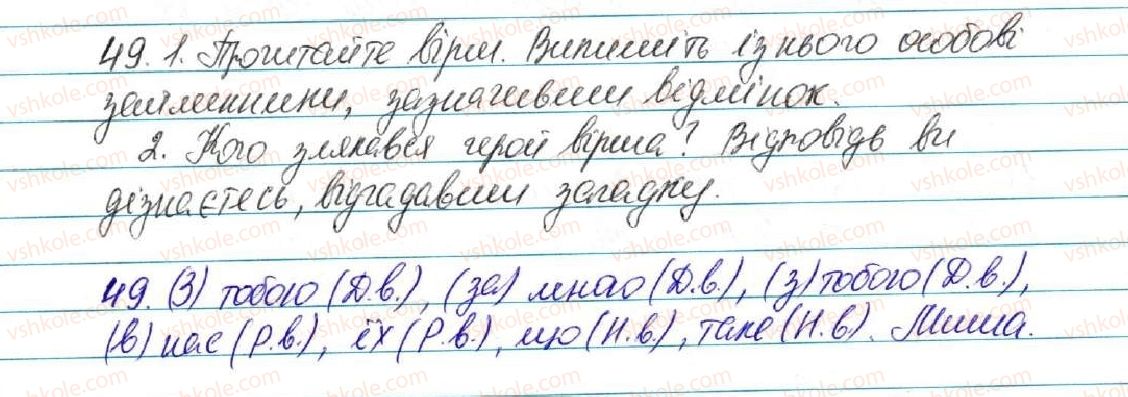 49. 1. Прочитайте вірш. Випишіть із нього особові
займенники, зазначивши відмінок.
2. Кого злякався герой вірша? Відповідь ви
дізнаєтесь, відгадавши загадку.
49. (З) тобою (Д.в.), (за) мною (Д.в.), (з) тобою (Д.в.),
(в) нас (Р.в.), їх (Р.в.), що (Н.в.), таке (Н.в). Миша.